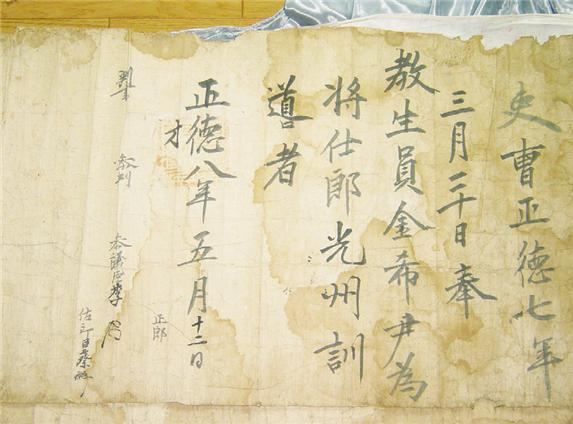 吏曹正德七年
三月二十日奉
教生員金希尹為
將仕郎光州訓
導者
正德八年五月十二日
才
正郎
參判
參議臣李
佐郎臣蔡